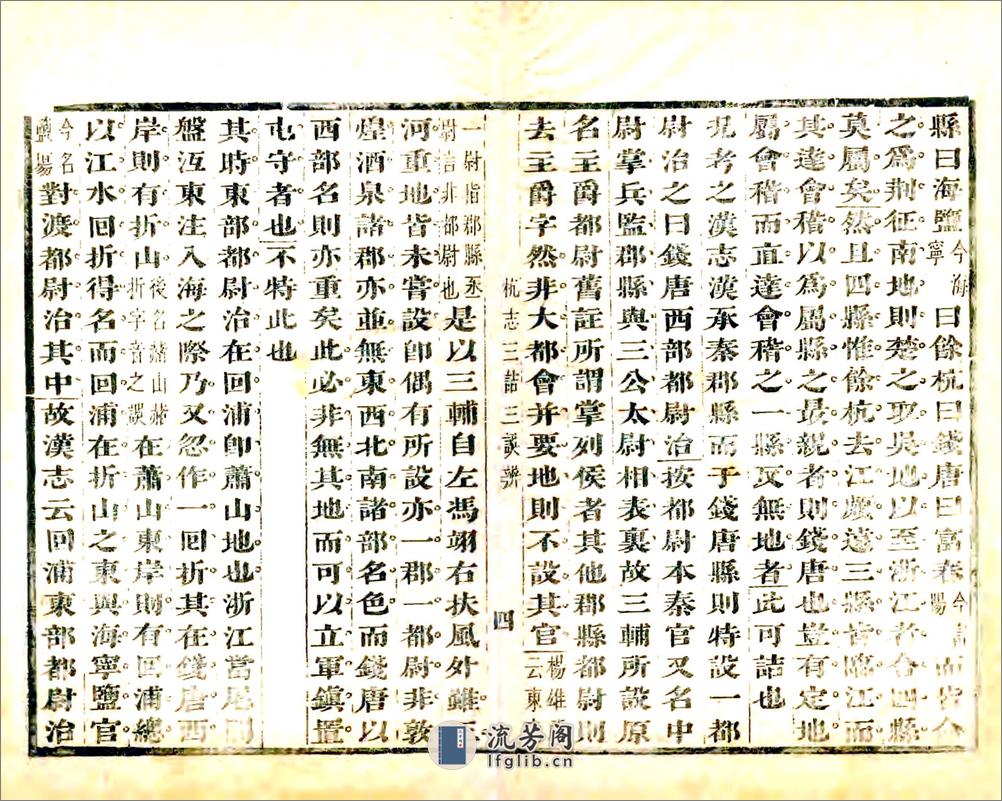 縣曰海鹽今海寧曰餘杭曰錢唐曰富春今富陽而皆今
之爲荆征南地則楚之取吳地以至浙江者合四縣
莫屬矣然且四縣惟餘杭去江頗遠三縣皆臨江而
其達會稽以爲屬縣之最親者則錢唐也豈有定地
屬會稽而直達會稽之一縣反無地者此可詰也
況考之漢志漢承秦郡縣而于錢唐縣則特設一都
尉治之曰錢唐西部都尉治按都尉本秦官又名中
尉掌兵監郡縣與三公太尉相表裏故三輔所設原
名主爵都尉舊註所謂掌列侯者其他郡縣都尉則
去主爵字然非大都會并要地則不設其官楊雄云東
杭志三詰三誤辨
四
一尉指郡縣丞尉言非都尉也是以三輔自左馮翊右扶風外雖三
河重地皆未嘗設卽偶有所設亦一郡一都尉非敦
煌酒泉諸郡亦並無東西北南諸部名色而錢唐以
西部名則亦重矣此必非無其地而可以立軍鎮置
屯守者也不特此也
其時東部都尉治在回浦卽蕭山地也浙江當尾閭
盤沍東注入海之際乃又忽作一回折其在錢唐西
岸則有折山後名赭山赭折字音之誤在蕭山東岸則有回浦總
以江水回折得名而回浦在折山之東與海寧鹽官
今名鹽場對渡都尉治其中故漢志云回浦東部都尉治
流芳阁
lfglib.cn